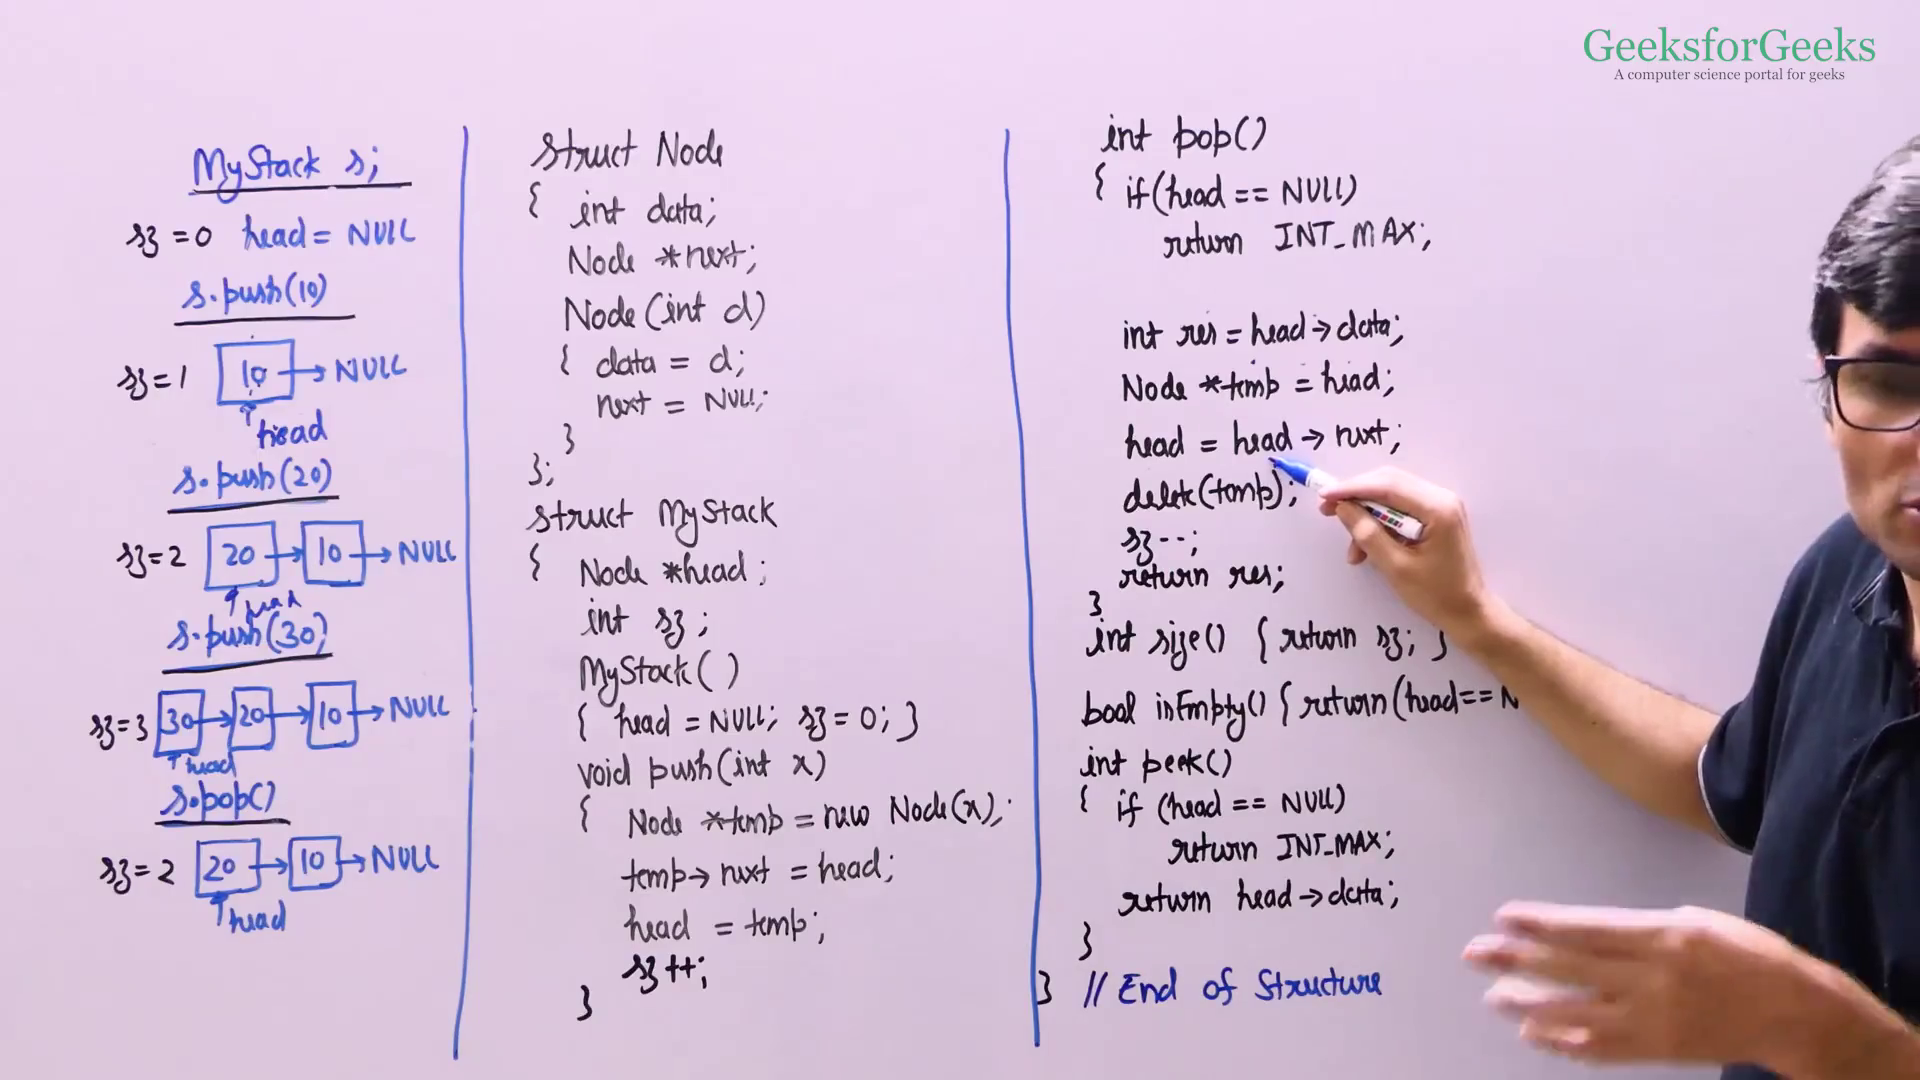 GeeksforGeeks
A computer science portal for geeks
MyStack s;
sz = 0 head = NULL
s.push(10)
sz = 1 10 → NULL
head
s.push(20)
sz = 2 20 → 10 → NULL
head
s.push(30)
sz = 3 30 → 20 → 10 → NULL
head
s.pop()
sz = 2 20 → 10 → NULL
head
struct Node
{ int data;
Node *next;
Node(int d)
{ data = d;
next = NULL;
}
};
struct MyStack
{ Node *head;
int sz;
MyStack( )
{ head = NULL; sz = 0; }
void push(int x)
{ Node *temp = new Node(x);
temp → next = head;
head = temp;
sz++;
}
int pop()
{ if(head == NULL)
return INT_MAX;
int res = head → data;
Node *temp = head;
head = head → next;
delete(temp);
sz--;
return res;
}
int size() { return sz; }
bool isEmpty() { return(head==N
int peek()
{ if (head == NULL)
return INT_MAX;
return head → data;
}
} // End of Structure